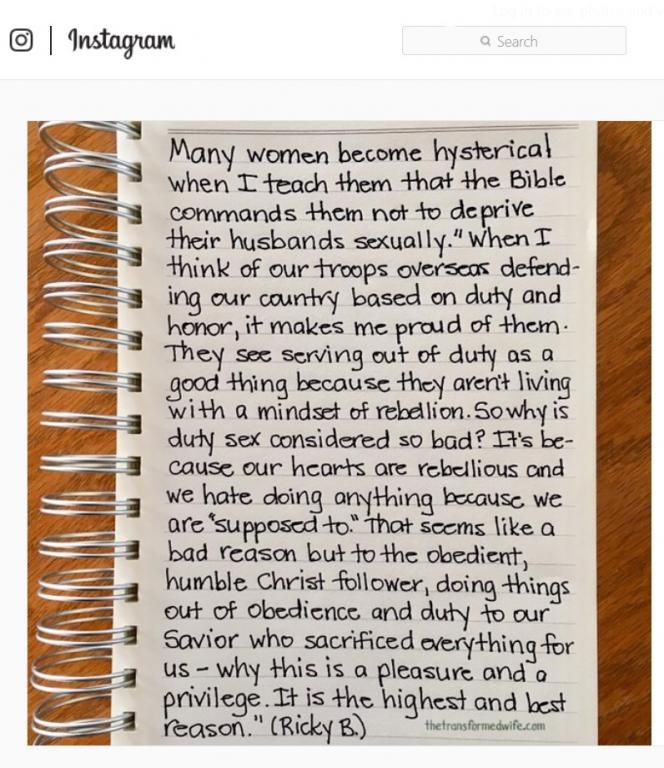 Instagram
Search
Many women become hysterical
when I teach them that the Bible
commands them not to deprive
their husbands sexually." When I
think of our troops overseas defend-
ing our country based on duty and
honor, it makes me proud of them.
They see serving out of duty as a
good thing because they aren't living
with a mindset of rebellion. So why is
duty sex considered so bad? It's be-
cause our hearts are rebellious and
we hate doing anything because we
are "supposed to." That seems like a
bad reason but to the obedient,
humble Christ follower, doing things
out of obedience and duty to our
Savior who sacrificed everything for
us - why this is a pleasure and a
privilege. It is the highest and best
reason." (Ricky B.)
thetransformedwife.com